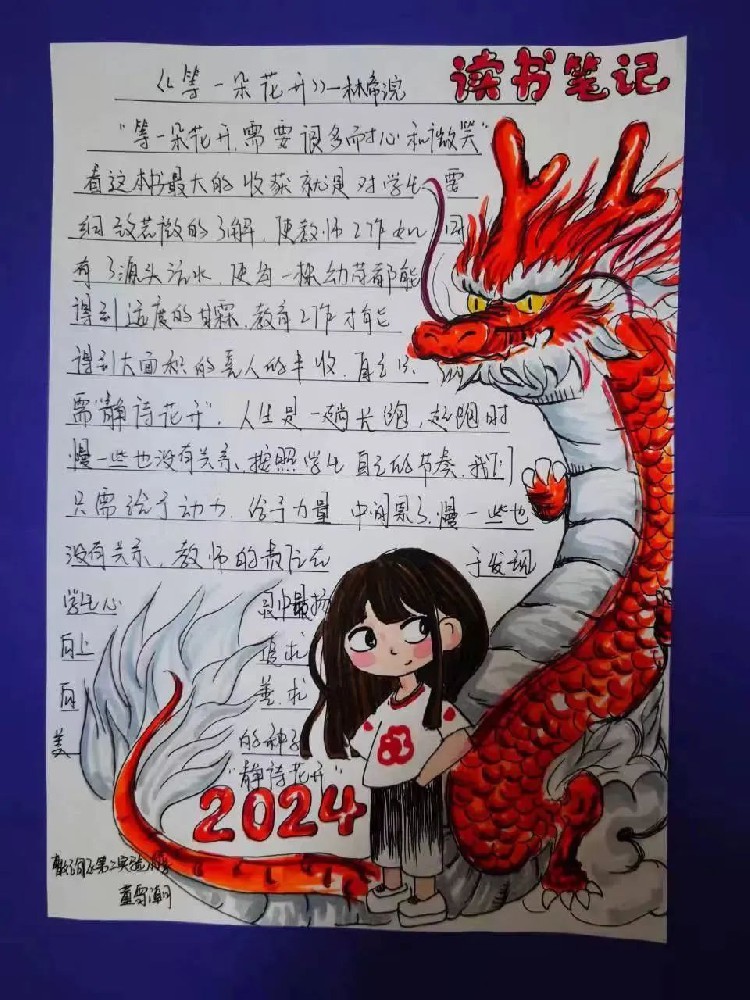 读书笔记
《等一朵花开》—林帝浣
"等一朵花开,需要很多耐心和微笑"
看这本书最大的收获就是对学生需
细致若微的了解,使教师工作如同
有了源头活水,使每一株幼苗都能
得到适度的甘霖,教育工作才能
得到大面积的喜人的丰收,
需"静待花开",人生是一趟长跑,起跑时
慢一些也没有关系,按照学生自己的节奏,我们
只需给予动力,给予力量,中间累了,慢一些也
没有关系,教师的责任在于发现
学生心灵中最
向上 追求
向善,求
美的种子
"静待花开"
2024
第二实验小学